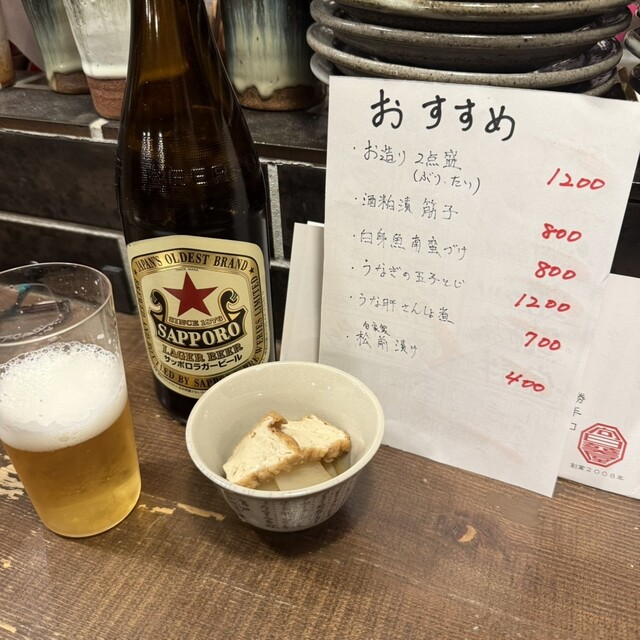 おすすめ
・お造り 2点盛
(ぶり、たい)
1200
・酒粕漬 筋子
800
・白身魚南蛮づけ
800
・うなぎの玉子とじ
1200
・うな肝さんしょ煮
700
・自家製
松前漬け
400
JAPAN'S OLDEST BRAND
SINCE 1876
SAPPORO
LAGER BEER
サッポロラガービール
創業2008年